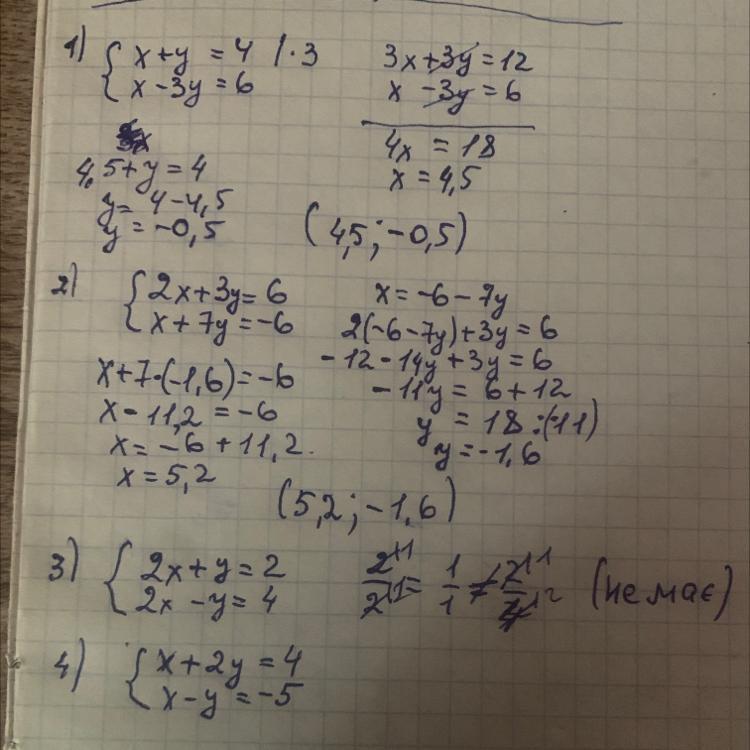 1) { x + y = 4 / · 3
x - 3y = 6
3x + 3y = 12
x - 3y = 6
4x = 18
x = 4,5
4,5 + y = 4
y = 4 - 4,5
y = -0,5
(4,5 ; -0,5)
2) { 2x + 3y = 6
x + 7y = -6
x = -6 - 7y
2(-6 - 7y) + 3y = 6
-12 - 14y + 3y = 6
-11y = 6 + 12
y = 18 : (-11)
y = -1,6
x + 7 · (-1,6) = -6
x - 11,2 = -6
x = -6 + 11,2.
x = 5,2
(5,2 ; -1,6)
3) { 2x + y = 2
2x - y = 4
2¹¹/2¹¹ = 1/1 ≠ 2¹¹/4¹² (немає)
4) { x + 2y = 4
x - y = -5